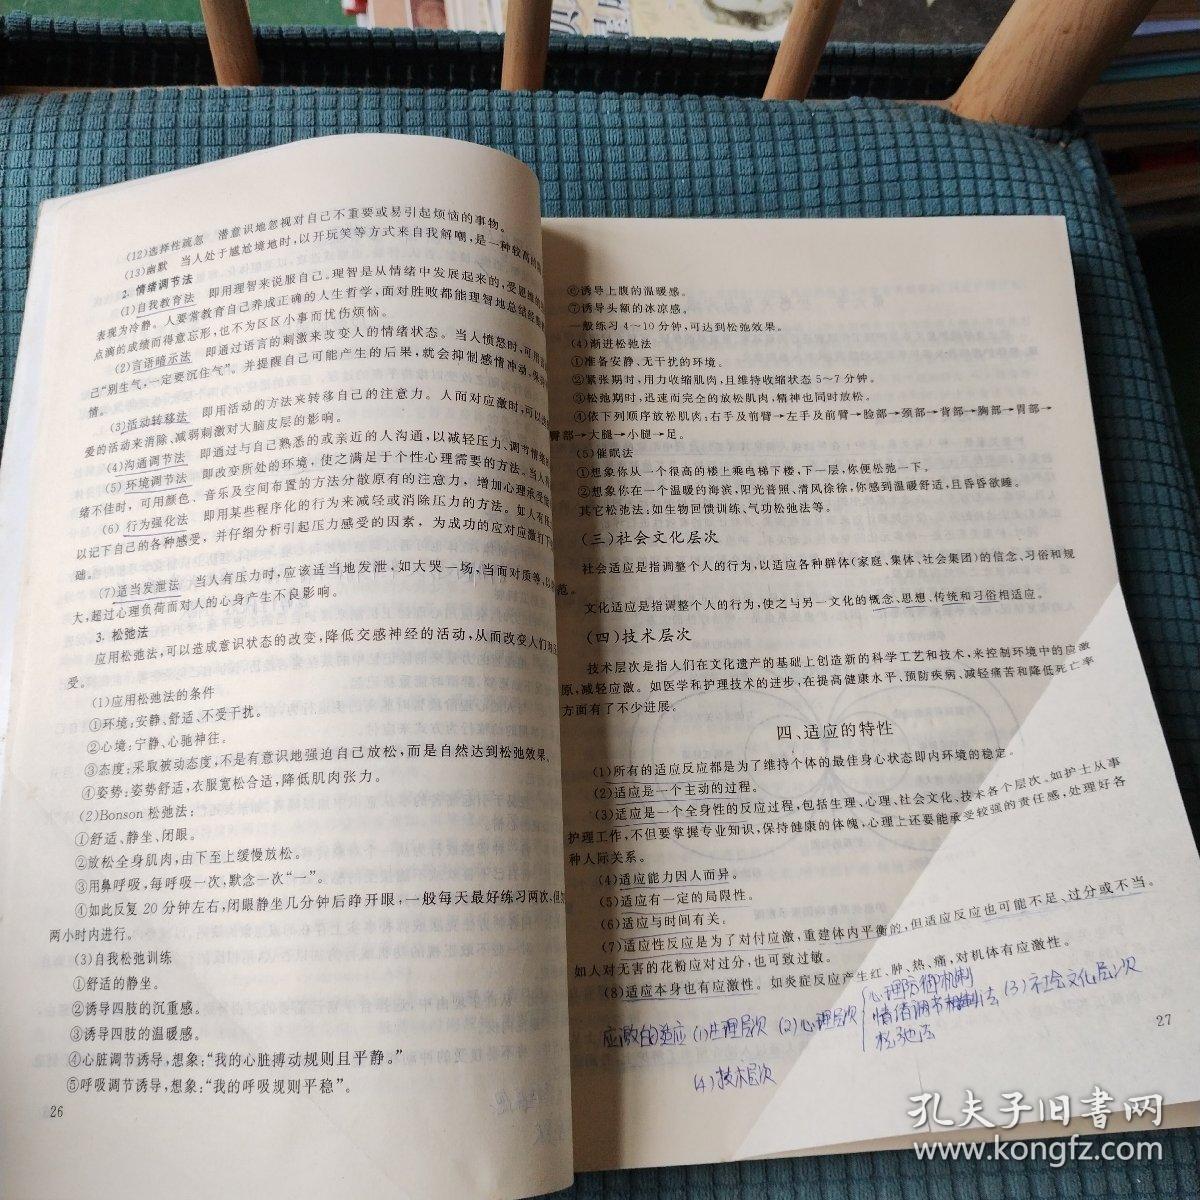 (12)选择性疏忽 潜意识地忽视对自己不重要或易引起烦恼的事物。
(13)幽默 当人处于尴尬境地时,以开玩笑等方式来自我解嘲,是一种较高的
2. 情绪调节法
(1)自我教育法 即用理智来说服自己。理智是从情绪中发展起来的,受思维的
表现为冷静。人要常教育自己养成正确的人生哲学,面对胜败都能理智地总结经
点滴的成绩而得意忘形,也不为区区小事而忧伤烦恼。
(2)言语暗示法 即通过语言的刺激来改变人的情绪状态。当人愤怒时,可用
己“别生气,一定要沉住气”。并提醒自己可能产生的后果,就会抑制感情冲动、保
情。
(3)活动转移法 即用活动的方法来转移自己的注意力。人面对应激时,可以
爱的活动来消除、减弱刺激对大脑皮层的影响。
(4)沟通调节法 即通过与自己熟悉的或亲近的人沟通,以减轻压力、调节情绪
(5)环境调节法 即改变所处的环境,使之满足于个性心理需要的方法。当人
绪不佳时,可用颜色、音乐及空间布置的方法分散原有的注意力,增加心理承受
(6)行为强化法 即用某些程序化的行为来减轻或消除压力的方法。如人有压
以记下自己的各种感受,并仔细分析引起压力感受的因素,为成功的应对应激打下
础。
(7)适当发泄法 当人有压力时,应该适当地发泄,如大哭一场,当面对质等,以
大,超过心理负荷而对人的心身产生不良影响。
3. 松弛法
应用松弛法,可以造成意识状态的改变,降低交感神经的活动,从而改变人们对
受。
(1)应用松弛法的条件
①环境:安静、舒适、不受干扰。
②心境:宁静、心驰神往。
③态度:采取被动态度,不是有意识地强迫自己放松,而是自然达到松弛效果。
④姿势:姿势舒适,衣服宽松合适,降低肌肉张力。
(2)Bonson 松弛法:
①舒适、静坐、闭眼。
②放松全身肌肉,由下至上缓慢放松。
③用鼻呼吸,每呼吸一次,默念一次“一”。
④如此反复20分钟左右,闭眼静坐几分钟后睁开眼,一般每天最好练习两次,但
两小时内进行。
(3)自我松弛训练
①舒适的静坐。
②诱导四肢的沉重感。
③诱导四肢的温暖感。
④心脏调节诱导,想象:“我的心脏搏动规则且平静。”
⑤呼吸调节诱导,想象:“我的呼吸规则平稳”。
26
⑥诱导上腹的温暖感。
⑦诱导头额的冰凉感。
一般练习4~10分钟,可达到松弛效果。
(4)渐进松弛法
①准备安静、无干扰的环境。
②紧张期时,用力收缩肌肉,且维持收缩状态5~7分钟。
③松弛期时,迅速而完全的放松肌肉,精神也同时放松。
④依下列顺序放松肌肉:右手及前臂→左手及前臂→脸部→颈部→背部→胸部→胃部→
臀部→大腿→小腿→足。
(5)催眠法
①想象你从一个很高的楼上乘电梯下楼,下一层,你便松弛一下。
②想象你在一个温暖的海滨,阳光普照、清风徐徐,你感到温暖舒适,且昏昏欲睡。
其它松弛法:如生物回馈训练、气功松弛法等。
(三)社会文化层次
社会适应是指调整个人的行为,以适应各种群体(家庭、集体、社会集团)的信念、习俗和规
范。
文化适应是指调整个人的行为,使之与另一文化的概念、思想、传统和习俗相适应。
(四)技术层次
技术层次是指人们在文化遗产的基础上创造新的科学工艺和技术,来控制环境中的应激
原,减轻应激。如医学和护理技术的进步,在提高健康水平、预防疾病、减轻痛苦和降低死亡率
方面有了不少进展。
四、适应的特性
(1)所有的适应反应都是为了维持个体的最佳身心状态即内环境的稳定。
(2)适应是一个主动的过程。
(3)适应是一个全身性的反应过程,包括生理、心理、社会文化、技术各个层次。如护士从事
护理工作,不但要掌握专业知识,保持健康的体魄,心理上还要能承受较强的责任感,处理好各
种人际关系。
(4)适应能力因人而异。
(5)适应有一定的局限性。
(6)适应与时间有关。
(7)适应性反应是为了对付应激,重建体内平衡的,但适应反应也可能不足、过分或不当。
如人对无害的花粉应对过分,也可致过敏。
(8)适应本身也有应激性。如炎症反应产生红、肿、热、痛,对机体有应激性。
应激的适应 (1)生理层次 (2)心理层次 心理防御机制
情绪调节机制法 (3)社会文化层次
松弛法
(4)技术层次
27
孔夫子旧书网
www.kongfz.com